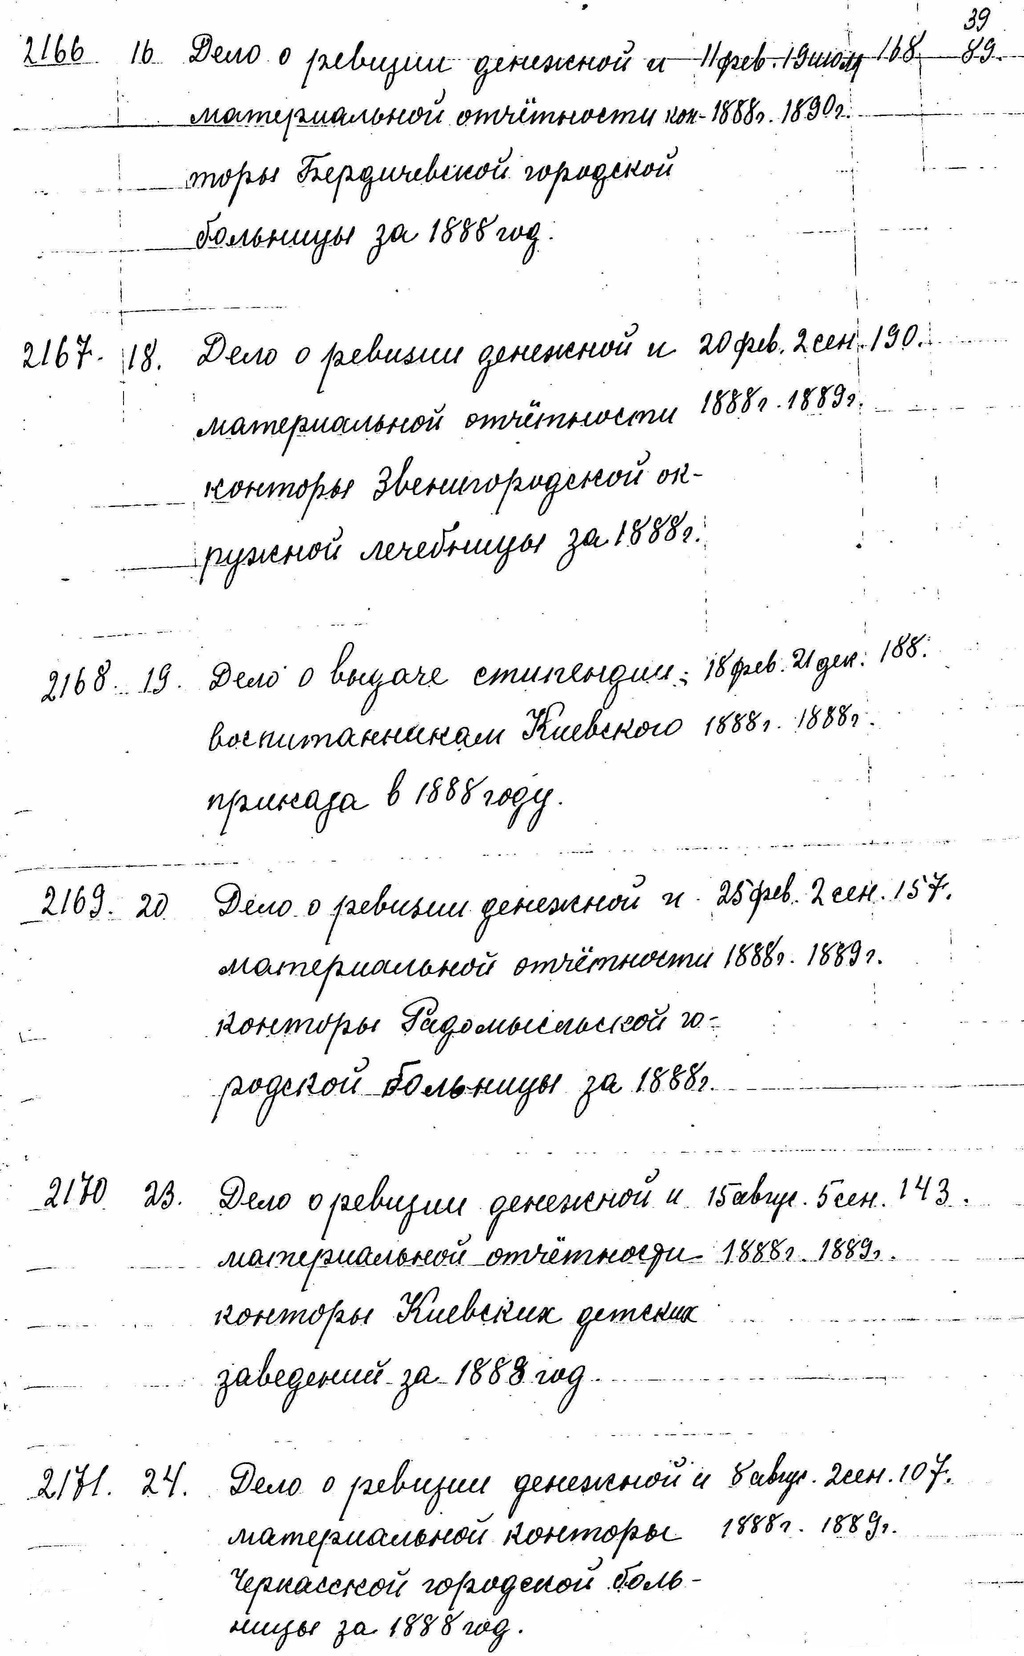 39
2166 16 Дело о ревизии денежной и 11 фев. 19 июля 168 89.
материальной отчётности кон- 1888г. 1890г.
торы Бердичевской городской
больницы за 1888 год.
2167. 18. Дело о ревизии денежной и 20 фев. 2 сен. 190.
материальной отчётности 1888г. 1889г.
конторы Звенигородской ок-
ружной лечебницы за 1888г.
2168. 19. Дело о выдаче стипендии 18 фев. 21 дек. 188.
воспитанникам Киевского 1888г. 1888г.
приказа в 1888 году.
2169. 20 Дело о ревизии денежной и 25 фев. 2 сен. 157.
материальной отчётности 1888г. 1889г.
конторы Радомысльской го-
родской больницы за 1888г.
2170 23. Дело о ревизии денежной и 15 авгус. 5 сен. 143.
материальной отчётности 1888г. 1889г.
конторы Киевских детских
заведений за 1888 год
2171. 24. Дело о ревизии денежной и 8 авгус. 2 сен. 107.
материальной конторы 1888г. 1889г.
Черкасской городской боль-
ницы за 1888 год.